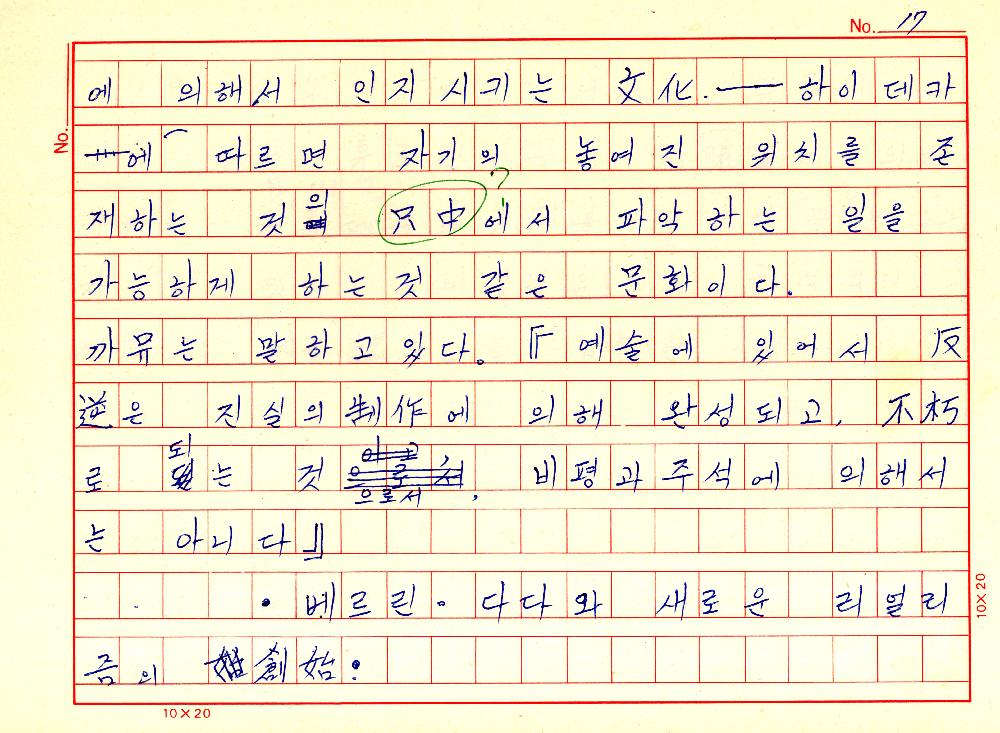 No. 17
에 의해서 인지 시키는 文化.——하이데카
에 따르면 자기의 놓여진 위치를 존
재하는 것의 只中에서 파악하는 일을
?
가능하게 하는것 같은 문화이다.
까뮤는 말하고있다. 『예술에 있어서 反
逆은 진실의 制作에 의해 완성되고, 不朽
로 되는 것으로서, 비평과주석에 의해서
는 아니다』
• 베르린·다다와 새로운 리얼리
즘의 創始:
No.
10×20
10×20